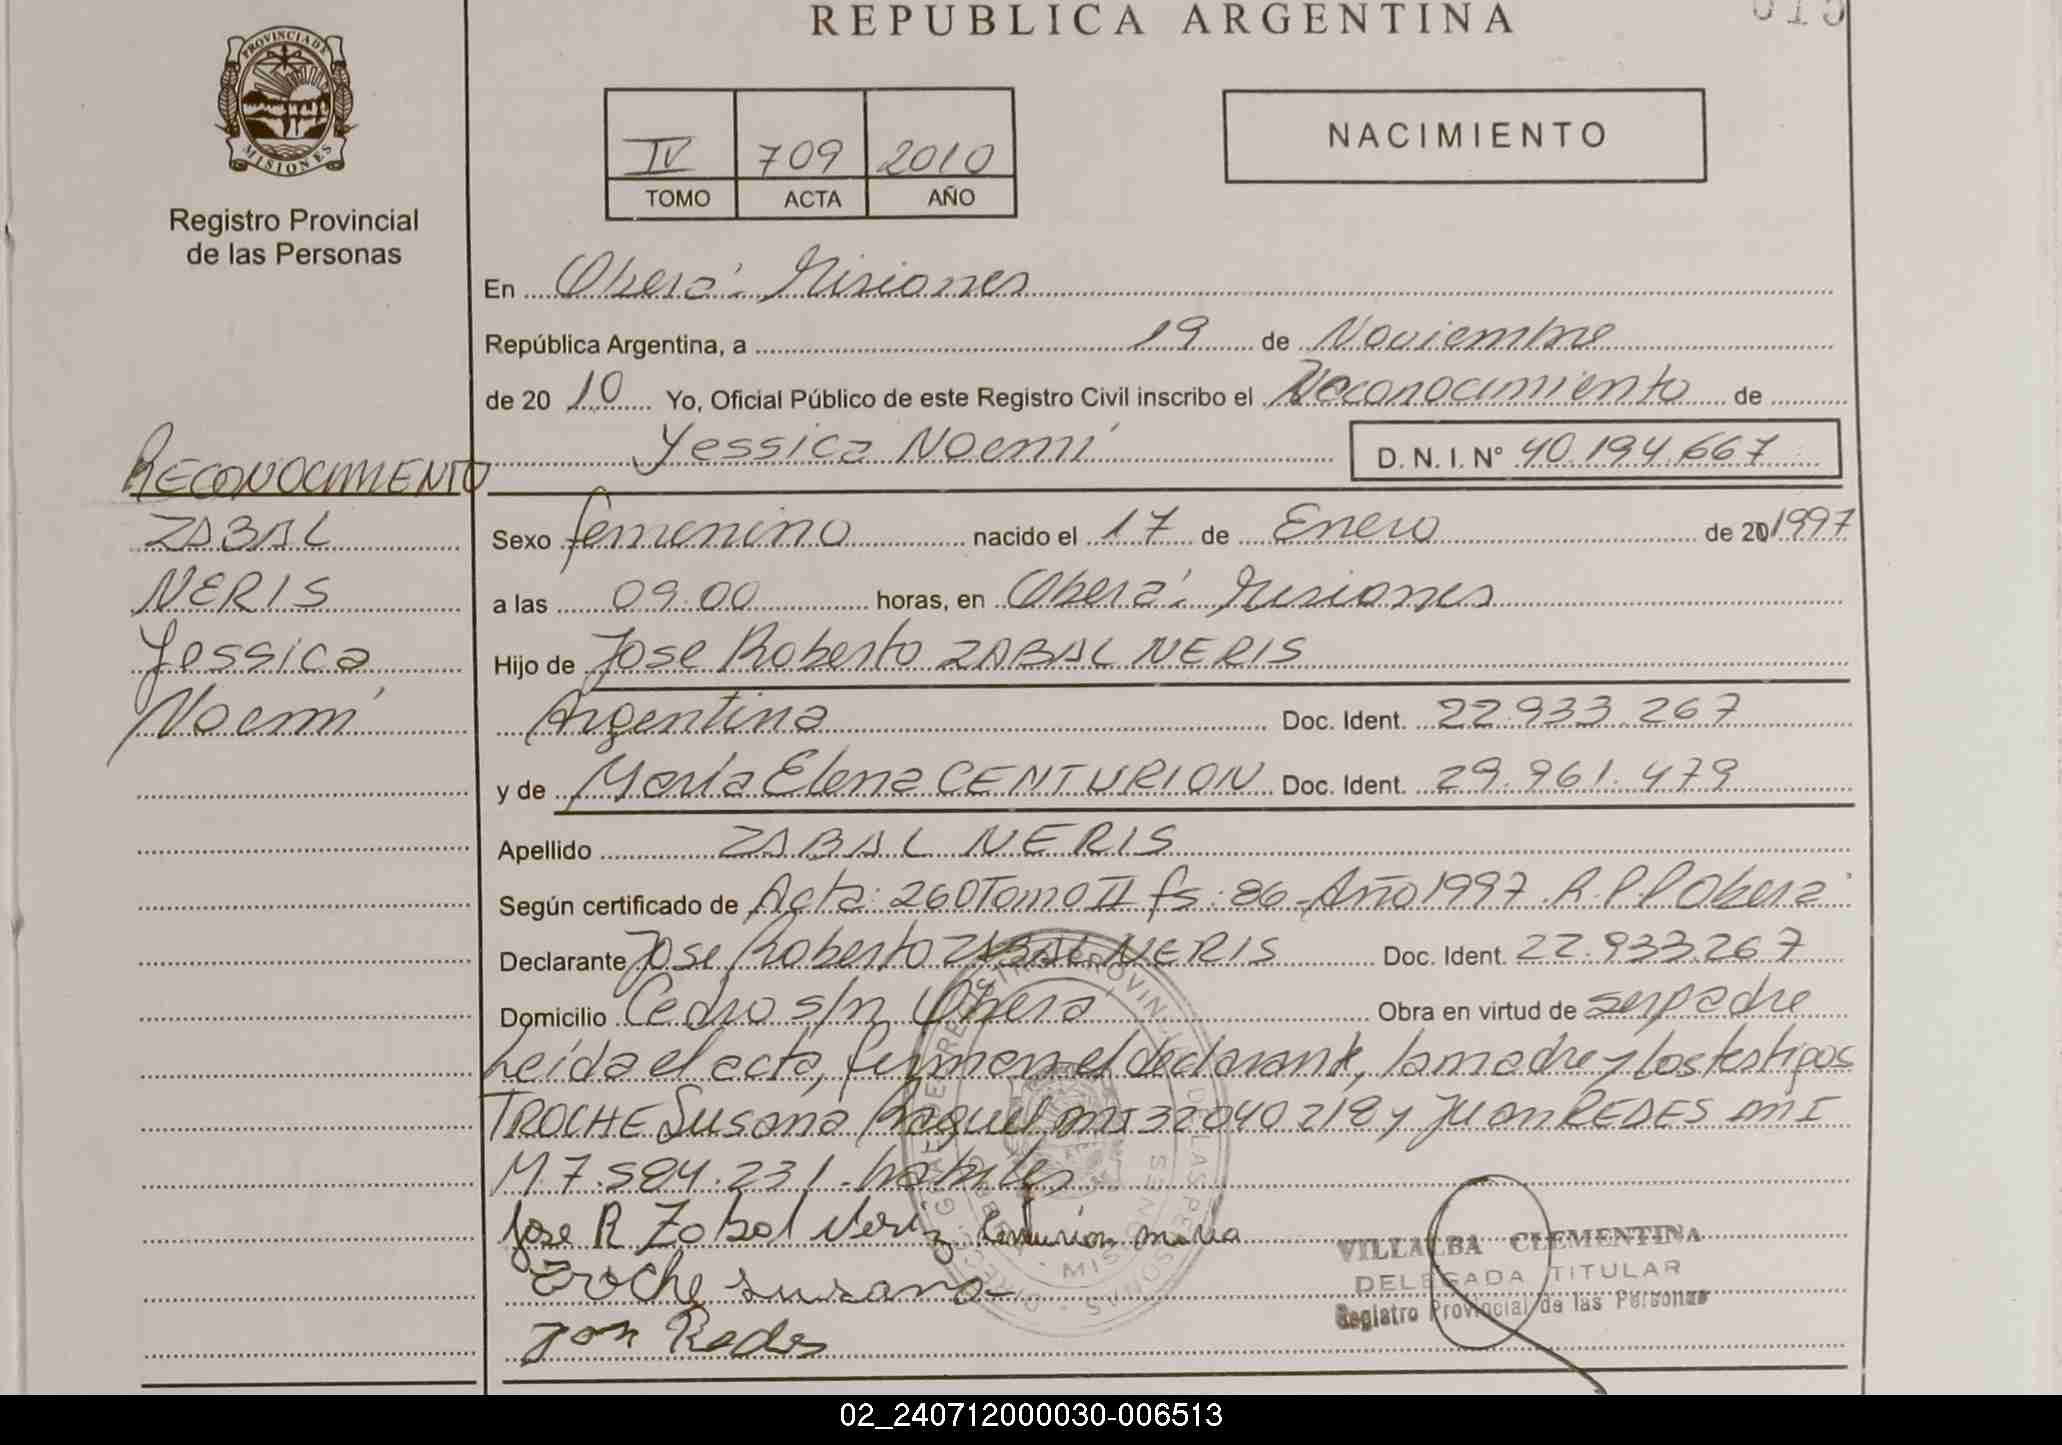 REPUBLICA ARGENTINA
015
PROVINCIA DE MISIONES
Registro Provincial
de las Personas
IV 709 2010
TOMO ACTA AÑO
NACIMIENTO
En Oberá: Misiones
República Argentina, a 19 de Noviembre
de 2010 Yo, Oficial Público de este Registro Civil inscribo el Reconocimiento de
Yessica Noemí D. N. I. N° 40.194.667
RECONOCIMIENTO
ZABAL
NERIS
Yessica
Noemí
Sexo femenino nacido el 17 de Enero de 20 1997
a las 09:00 horas, en Oberá: Misiones
Hijo de Jose Roberto ZABAL NERIS
Argentina Doc. Ident. 22.933.267
y de María Elena CENTURION Doc. Ident. 29.961.479
Apellido ZABAL NERIS
Según certificado de Acta: 260 Tomo II fs: 86 - Año 1997 R.P.P Oberá
Declarante Jose Roberto ZABAL NERIS Doc. Ident. 22.933.267
Domicilio Cedro s/n Oberá Obra en virtud de ser padre
Leída el acta, firman el declarante, la madre y los testigos
TROCHE Susana Raquel DNI 32040218 y Juan REDES DNI
M.7.584.231. habiles
Jose R Zabal Neriz Centurion maria
Troche susana
Jon Redes
VILLALBA CLEMENTINA
DELEGADA TITULAR
Registro Provincial de las Personas
02_240712000030-006513